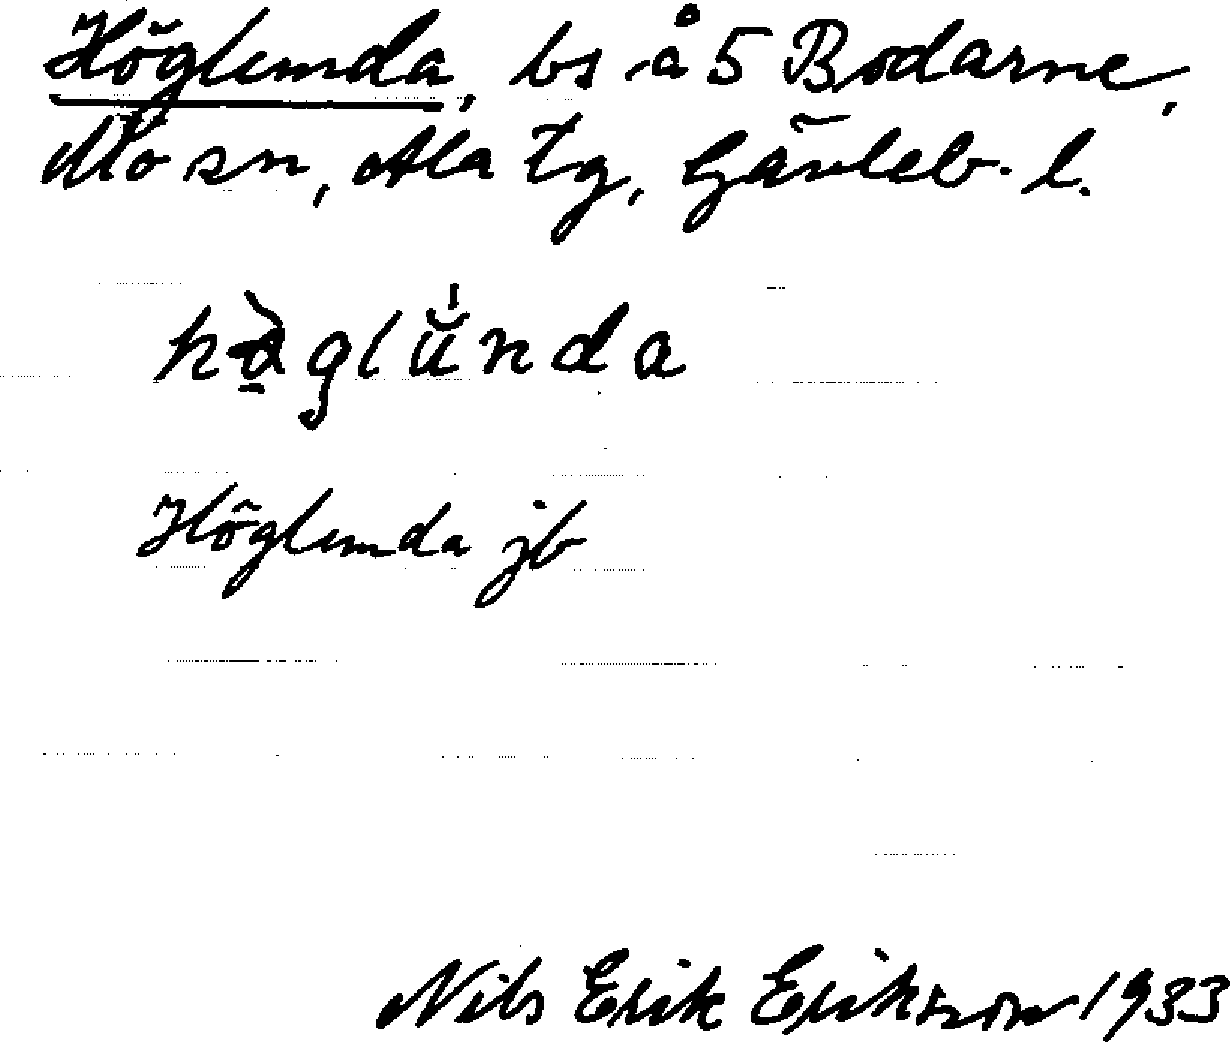 Höglunda, bs å 5 Bodarne,
Mo sn, Ala tg, Gävleb. l.
Höglunda jb
Nils Erik Erikson 1933